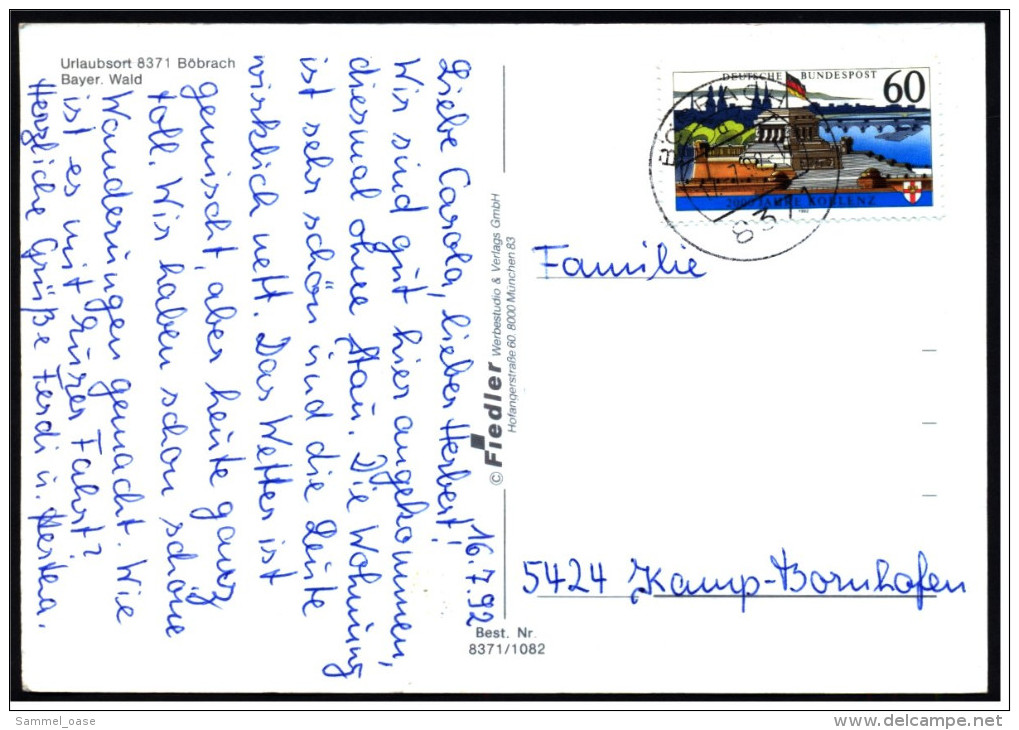 Urlaubsort 8371 Böbrach
Bayer. Wald
16.7.92
Liebe Carola, lieber Herbert!
Wir sind gut hier angekommen,
diesmal ohne Stau. Die Wohnung
ist sehr schön und die Leute
wirklich nett. Das Wetter ist
gemischt, aber heute ganz
toll. Wir haben schon schöne
Wanderungen gemacht. Wie
ist es mit Eurer Fahrt?
Herzliche Grüße Ferdi u. Herta.
© Fiedler Werbestudio & Verlags GmbH
Hofangerstraße 60. 8000 München 83
Best. Nr.
8371/1082
DEUTSCHE BUNDESPOST 60
2000 JAHRE KOBLENZ
1992
Familie
5424 Kamp-Bornhofen
Sammel_oase
www.delcampe.net